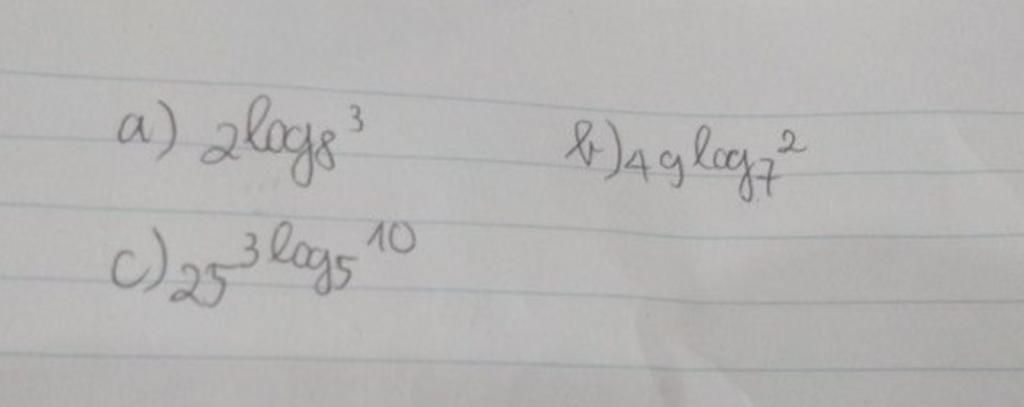 a) 2log₈³ b) 49log₇²
c) 25³log₅¹⁰